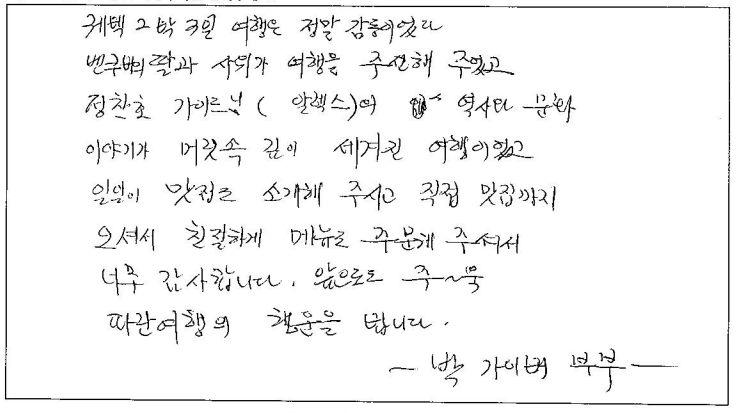 퀘백 2박 3일 여행은 정말 감동이었다
벤쿠버의 딸과 사위가 여행을 주선해 주었고
정찬호 가이드님 ( 알렉스)의 역사와 문화
이야기가 머릿속 깊이 새겨진 여행이었고
일일이 맛집도 소개해 주시고 직접 맛집까지
오셔서 친절하게 메뉴도 주문해 주셔서
너무 감사합니다. 앞으로도 주~욱
파란여행의 행운을 빕니다.
- 박 가이버 부부 -